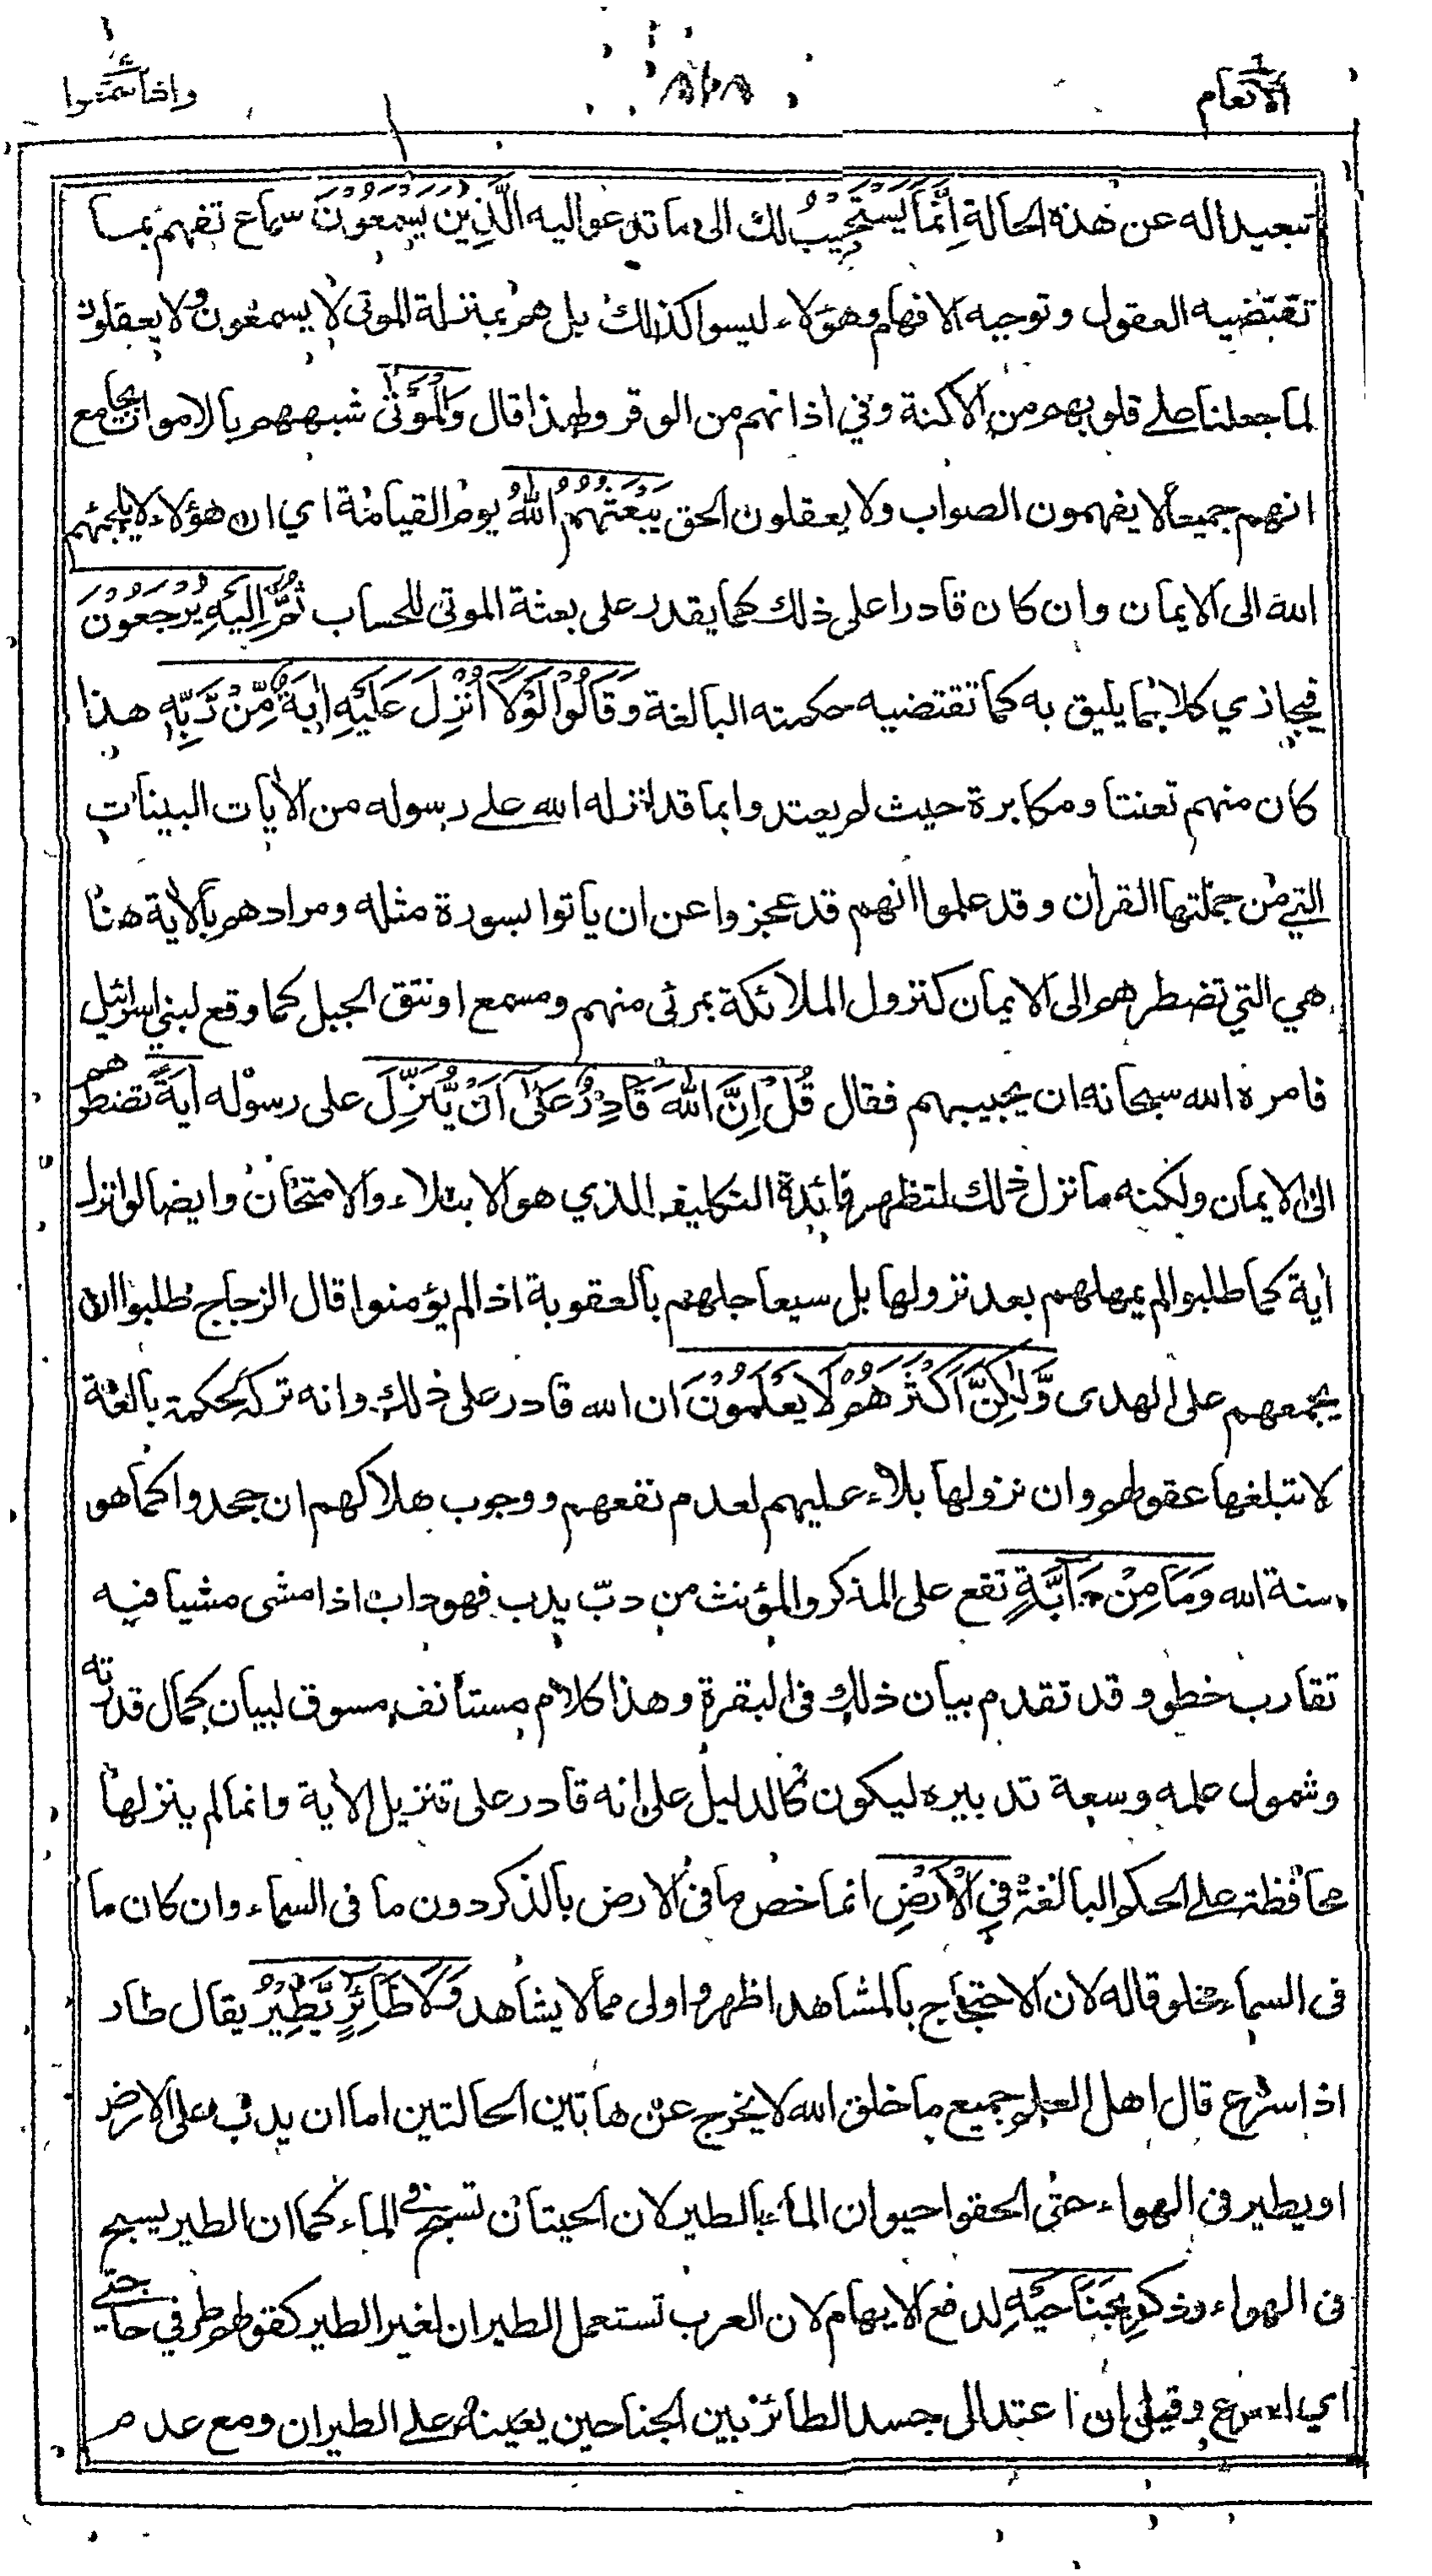 الانعام
واذا سمعوا
تبعيدا له عن هذه الحالة اِنَّمَا يَسْتَجِيْبُ لك الى ما تدعو اليه الَّذِيْنَ يَسْمَعُوْنَ سماع تفهم بما
تقتضيه العقول وتوجبه الافهام وهؤلاء ليسوا كذلك بل هم بمنزلة الموتى لا يسمعون ولا يعقلون
لما جعلنا على قلوبهم من الاكنة وفي اذانهم من الوقر ولهذا قال وَالْمَوْتٰى شبههم بالاموات بجامع
انهم جميعا لا يفهمون الصواب ولا يعقلون الحق يَبْعَثُهُمُ اللّٰهُ يوم القيامة اي ان هؤلاء لا يلجئهم
الله الى الايمان وان كان قادرا على ذلك كما يقدر على بعثة الموتى للحساب ثُمَّ اِلَيْهِ يُرْجَعُوْنَ
فيجازي كلا بما يليق به كما تقتضيه حكمته البالغة وَقَالُوْا لَوْلَا اُنْزِلَ عَلَيْهِ اٰيَةٌ مِّنْ رَّبِّهٖ هذا
كان منهم تعنتا ومكابرة حيث لم يعتدوا بما قد انزله الله على رسوله من الاٰيات البينات
التي من جملتها القراٰن وقد علموا انهم قد عجزوا عن ان ياتوا بسورة مثله ومرادهم بالاية هنا
هي التي تضطرهم الى الايمان كنزول الملائكة بمرئى منهم ومسمع او نتق الجبل كما وقع لبني اسرائيل
فامره الله سبحانه ان يجيبهم فقال قُلْ اِنَّ اللّٰهَ قَادِرٌ عَلٰٓى اَنْ يُّنَزِّلَ على رسوله اٰيَةً تضطرهم
الى الايمان ولكنه ما نزل ذلك لتظهر فائدة التكليف الذي هو الابتلاء والامتحان وايضا لو انزل
اٰية كما طلبوا لم يمهلهم بعد نزولها بل سيعاجلهم بالعقوبة اذا لم يؤمنوا قال الزجاج طلبوا ان
يجمعهم على الهدى وَّلٰكِنَّ اَكْثَرَهُمْ لَا يَعْلَمُوْنَ ان الله قادر على ذلك وانه تركه لحكمة بالغة
لا تبلغها عقولهم وان نزولها بلاء عليهم لعدم نفعهم ووجوب هلاكهم ان جحدوا كما هو
سنة الله وَمَا مِنْ دَآبَّةٍ تقع على المذكر والمؤنث من دبّ يدب فهو داب اذا مشى مشيا فيه
تقارب خطو وقد تقدم بيان ذلك فى البقرة وهذا كلام مستانف مسوق لبيان كمال قدرته
وشمول علمه وسعة تدبيره ليكون كالدليل على انه قادر على تنزيل الاٰية وانما لم ينزلها
محافظة على الحكم البالغة فِي الْاَرْضِ انما خص ما فى الارض بالذكر دون ما فى السماء وان كان ما
فى السماء مخلوقا له لان الاحتجاج بالمشاهد اظهر واولى مما لا يشاهد وَلَا طَآئِرٍ يَّطِيْرُ يقال طار
اذا اسرع قال اهل العلم جميع ما خلق الله لا يخرج عن هاتين الحالتين اما ان يدب على الارض
او يطير فى الهواء حتى الحقوا حيوان الماء بالطير لان الحيتان تسبح في الماء كما ان الطير يسبح
فى الهواء وذكر بِجَنَاحَيْهِ لدفع الايهام لان العرب تستعمل الطيران لغير الطير كقولهم طر في حاجتي
اي اسرع وقيل ان اعتدال جسد الطائر بين الجناحين يعينه على الطيران ومع عدم